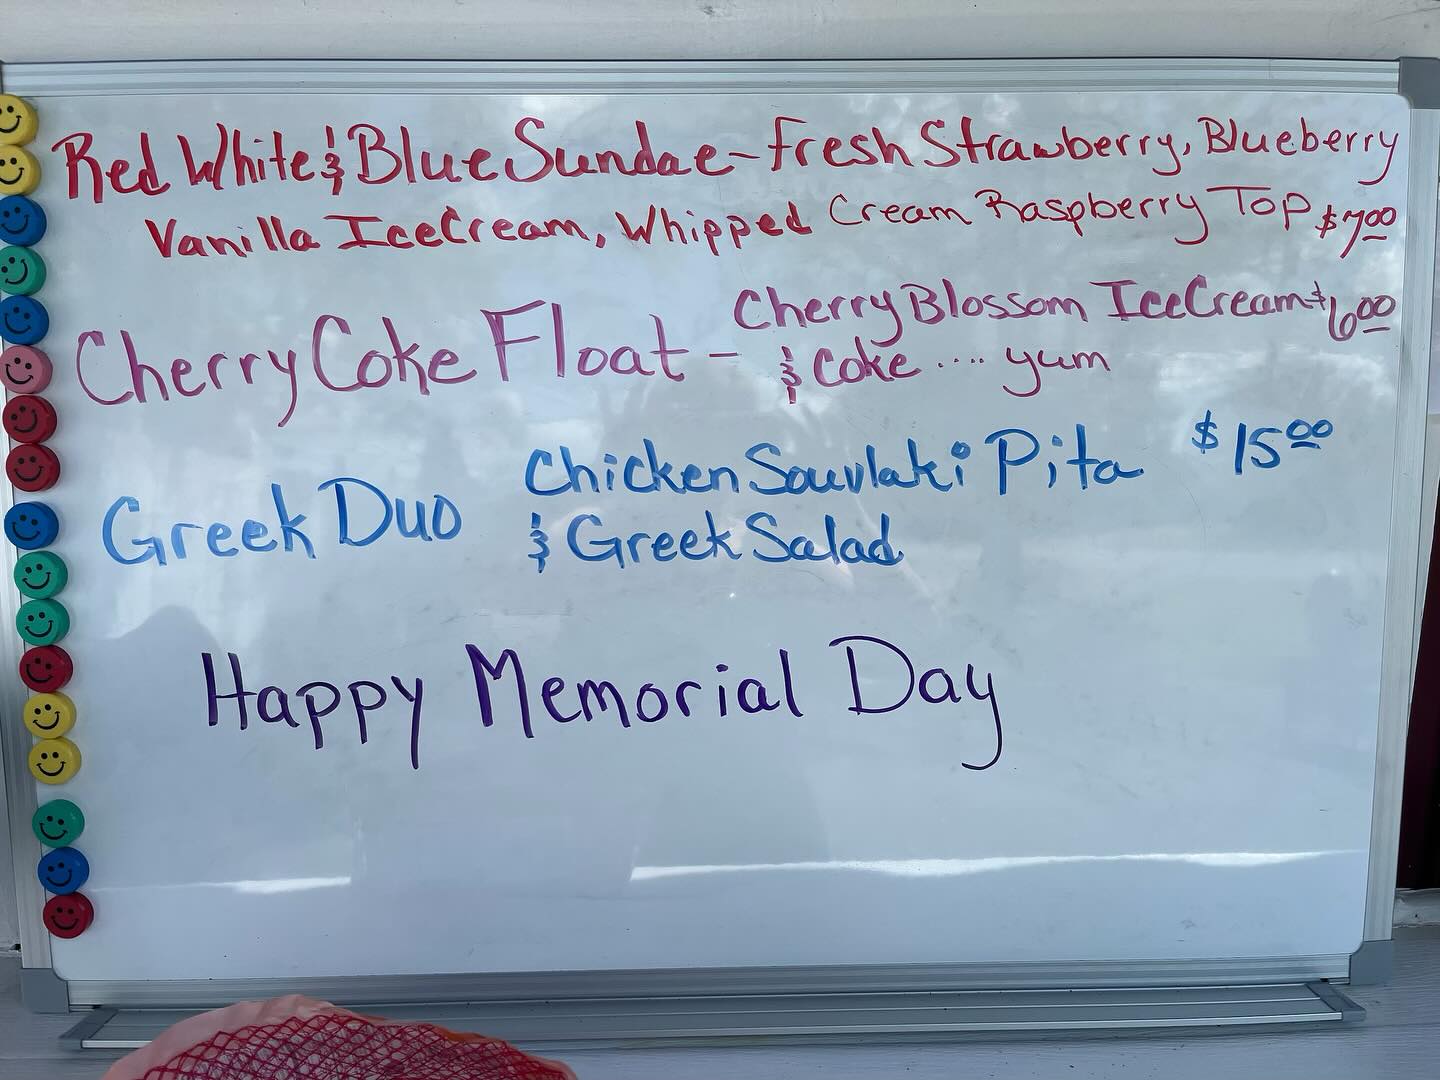 Red White & Blue Sundae - Fresh Strawberry, Blueberry
Vanilla Ice Cream, Whipped Cream Raspberry Top $7.00
Cherry Coke Float - Cherry Blossom Ice Cream $6.00
& Coke .... yum
Greek Duo Chicken Souvlaki Pita $15.00
& Greek Salad
Happy Memorial Day